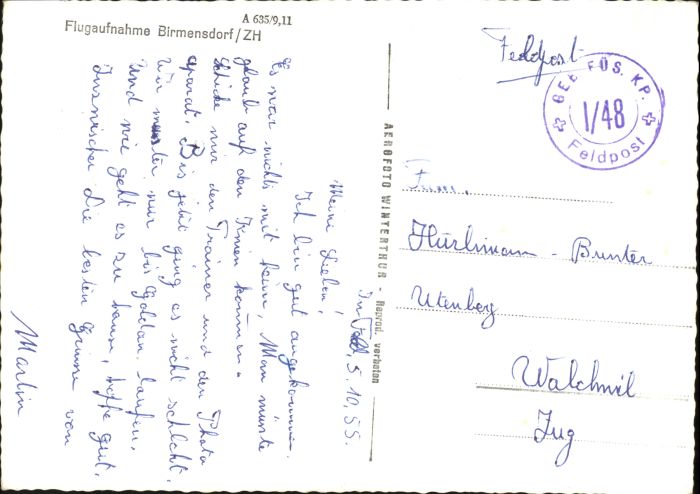 A 635/9,11
Flugaufnahme Birmensdorf/ZH
AEROFOTO WINTERTHUR - Reprod. verboten
Im Feld, 5.10.55.
Meine Lieben!
Ich bin gut angekommen.
Es war nichts mit heim, Man müsste
glaub auf den Knien kommen.
Schicke mir den Trainer und den Photo
aparat. Bis jetzt ging es nicht schlecht.
Wir mussten nur bis Goldau laufen,
Und wie geht es zu hause, hoffe gut.
Inzwischen die besten Grüsse von
Martin
Feldpost
GEB. FÜS. KP.
I/48
Feldpost
Fam.
Hürlimann - Bunter
Utenberg
Walchwil
Zug